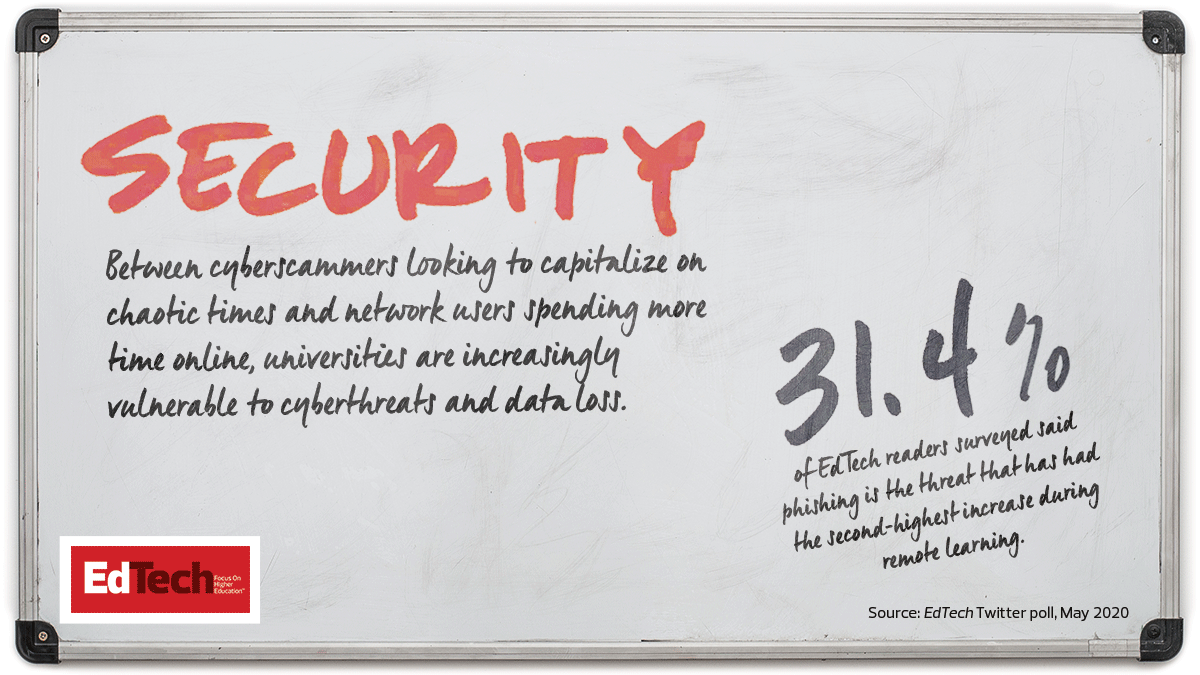 SECURITY
Between cyberscammers looking to capitalize on
chaotic times and network users spending more
time online, universities are increasingly
vulnerable to cyberthreats and data loss.
31.4%
of EdTech readers surveyed said
phishing is the threat that has had
the second-highest increase during
remote learning.
EdTech
Focus On
Higher
Education™
Source: EdTech Twitter poll, May 2020